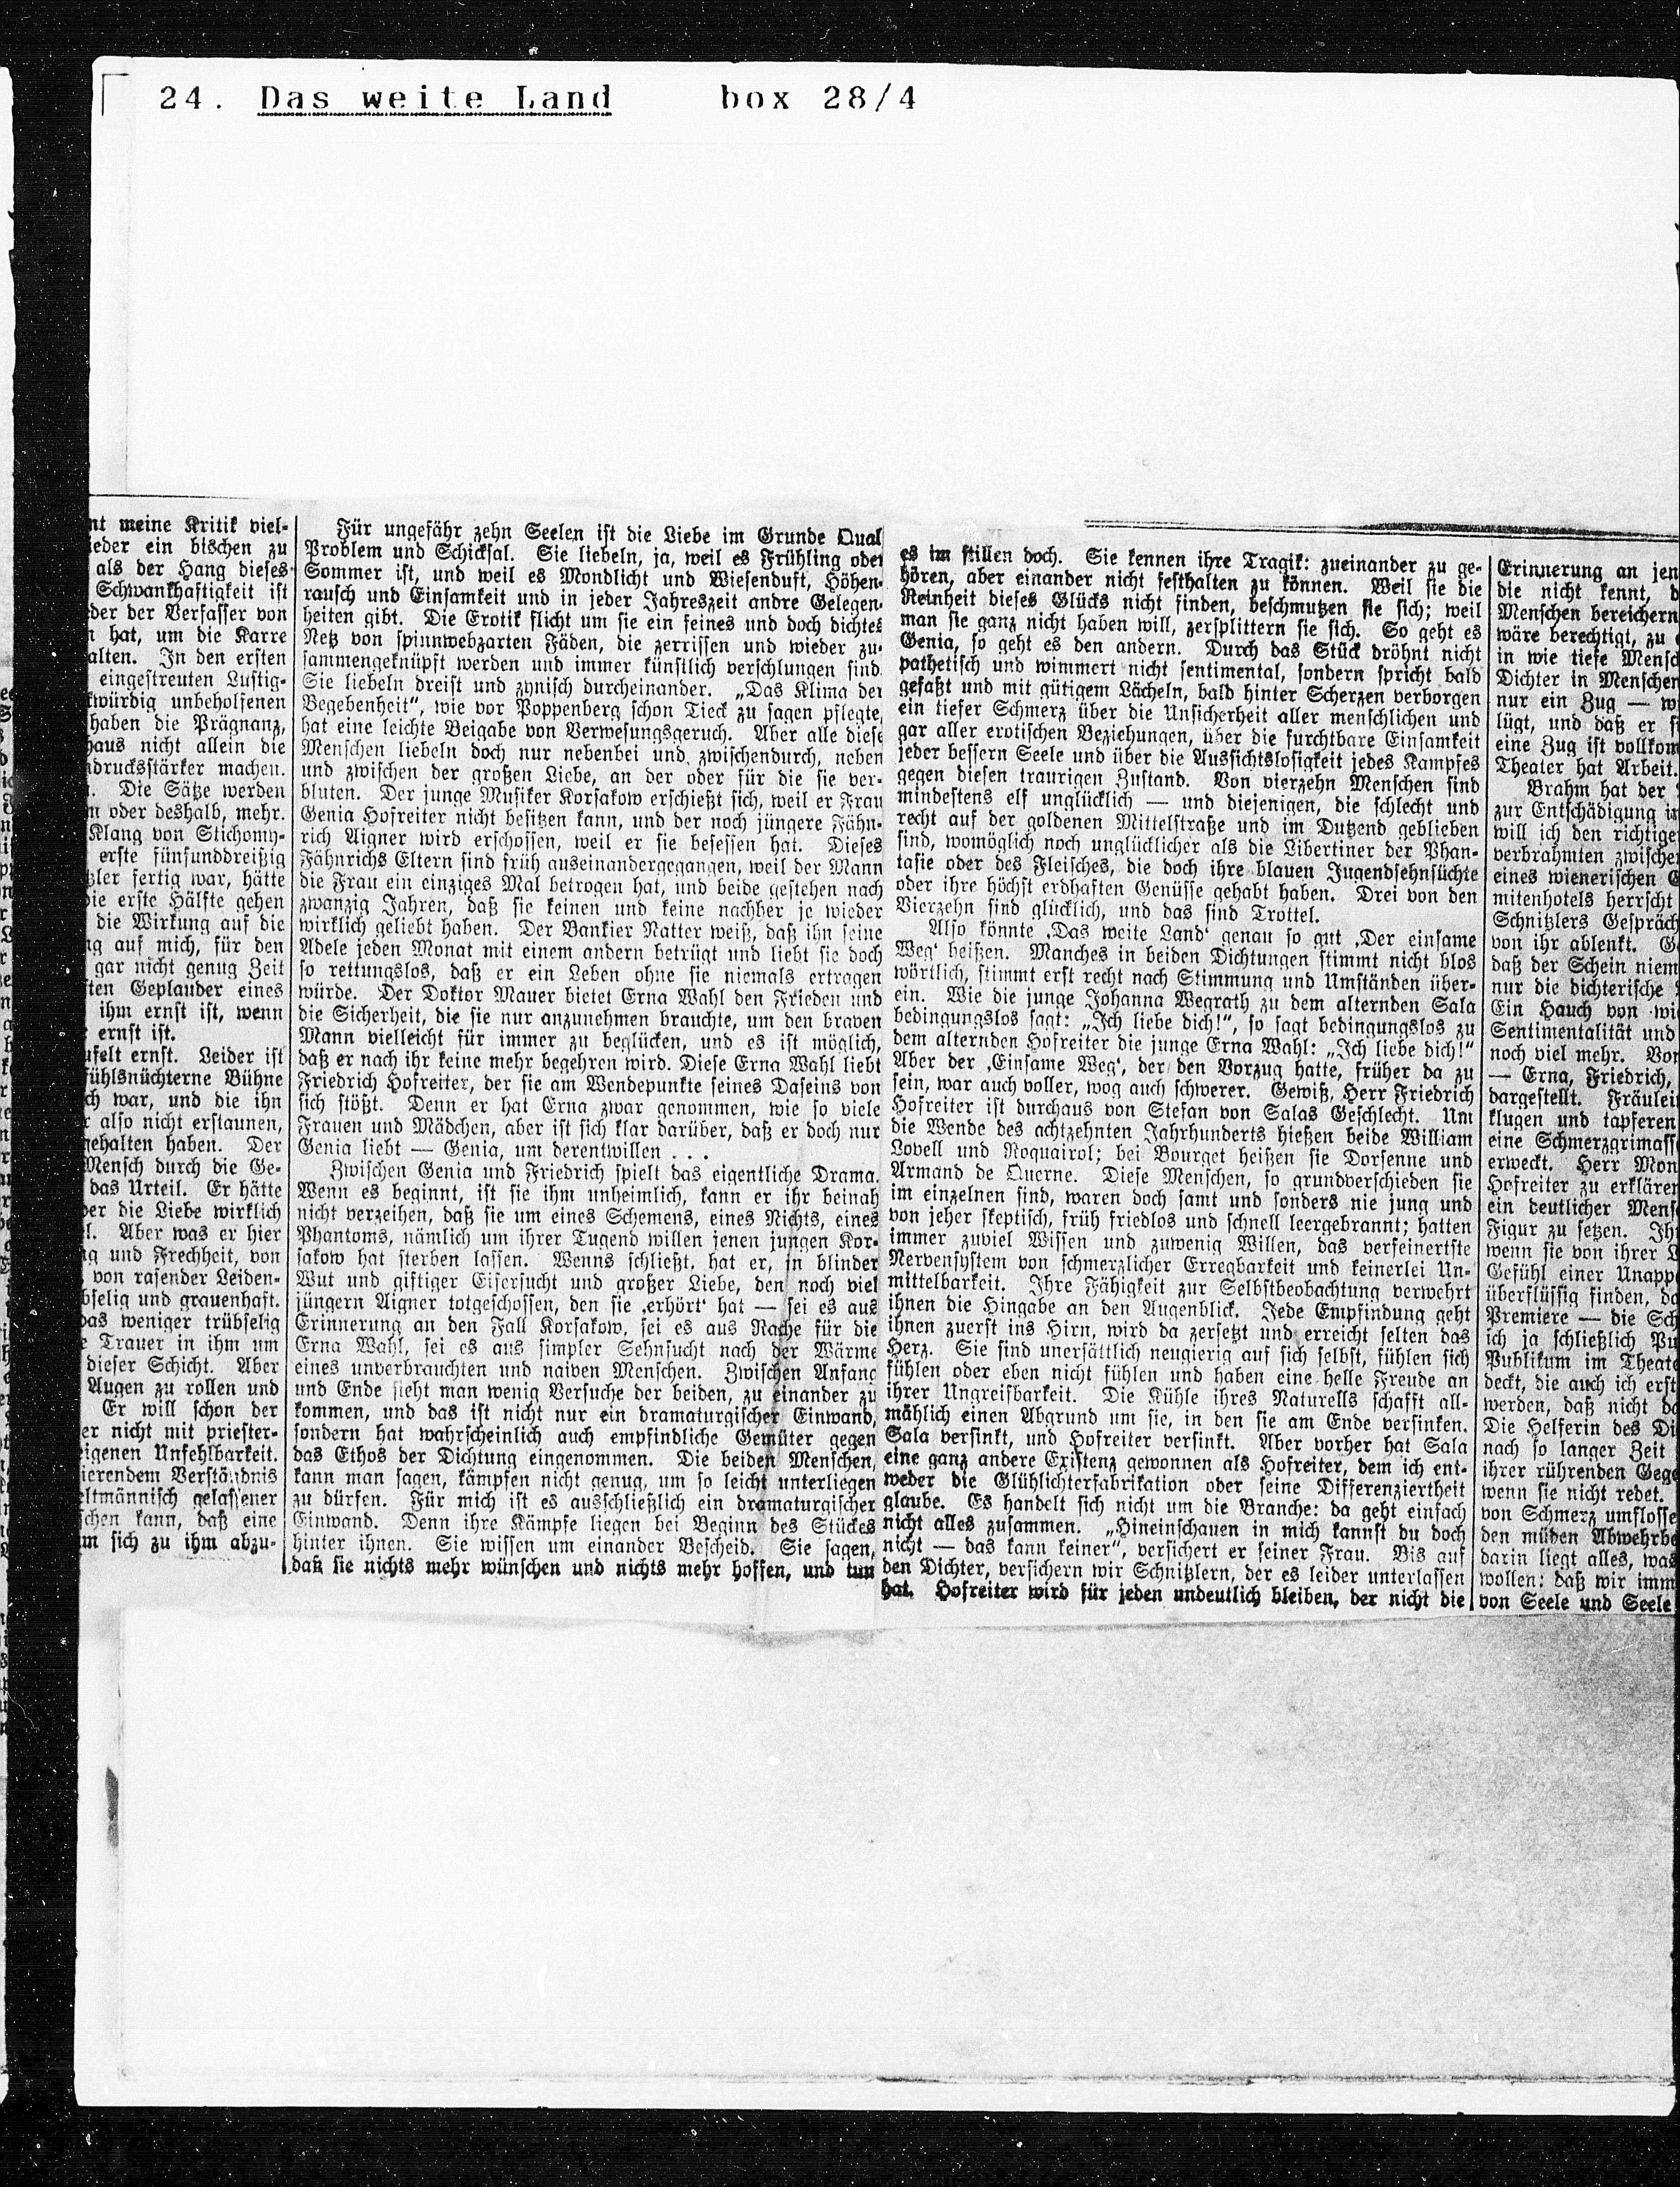 24. Das weite Land box 28/4
nt meine Kritik viel-
ieder ein bischen zu
als der Hang dieses
Schwankhaftigkeit ist
der der Verfasser von
n hat, um die Karre
alten. In den ersten
eingestreuten Lustig-
kwürdig unbeholfenen
haben die Prägnanz,
haus nicht allein die
druckstärker machen.
. Die Sätze werden
m oder deshalb, mehr.
Klang von Stichomy-
erste fünfunddreißig
zler fertig war, hätte
die erste Hälfte gehen
die Wirkung auf die
ng auf mich, für den
gar nicht genug Zeit
ten Geplauder eines
ihm ernst ist, wenn
ernst ist.
ufelt ernst. Leider ist
fühlsnüchterne Bühne
ch war, und die ihn
r also nicht erstaunen,
gehalten haben. Der
Mensch durch die Ge-
das Urteil. Er hätte
ber die Liebe wirklich
l. Aber was er hier
ng und Frechheit, von
von rasender Leiden-
bselig und grauenhaft.
das weniger trübselig
e Trauer in ihm um
dieser Schicht. Aber
Augen zu rollen und
Er will schon der
er nicht mit priester-
eigenen Unfehlbarkeit.
ierendem Verständnis
eltmännisch gelassener
schen kann, daß eine
um sich zu ihm abzu-
Für ungefähr zehn Seelen ist die Liebe im Grunde Qual
Problem und Schicksal. Sie liebeln, ja, weil es Frühling oder
Sommer ist, und weil es Mondlicht und Wiesenduft, Höhen-
rausch und Einsamkeit und in jeder Jahreszeit andre Gelegen-
heiten gibt. Die Erotik flicht um sie ein feines und doch dichtes
Netz von spinnwebzarten Fäden, die zerrissen und wieder zu-
sammengeknüpft werden und immer künstlich verschlungen sind.
Sie liebeln dreist und zynisch durcheinander. „Das Klima der
Begebenheit“, wie vor Poppenberg schon Tieck zu sagen pflegte,
hat eine leichte Beigabe von Verwesungsgeruch. Aber alle diese
Menschen liebeln doch nur nebenbei und zwischendurch, neben
und zwischen der großen Liebe, an der oder für die sie ver-
bluten. Der junge Musiker Korsakow erschießt sich, weil er Frau
Genia Hofreiter nicht besitzen kann, und der noch jüngere Fähn-
rich Aigner wird erschossen, weil er sie besessen hat. Dieses
Fähnrichs Eltern sind früh auseinandergegangen, weil der Mann
die Frau ein einziges Mal betrogen hat, und beide gestehen nach
zwanzig Jahren, daß sie keinen und keine nachher je wieder
wirklich geliebt haben. Der Bankier Natter weiß, daß ihn seine
Adele jeden Monat mit einem andern betrügt und liebt sie doch
so rettungslos, daß er ein Leben ohne sie niemals ertragen
würde. Der Doktor Mauer bietet Erna Wahl den Frieden und
die Sicherheit, die sie nur anzunehmen brauchte, um den braven
Mann vielleicht für immer zu beglücken, und es ist möglich,
daß er nach ihr keine mehr begehren wird. Diese Erna Wahl liebt
Friedrich Hofreiter, der sie am Wendepunkte seines Daseins von
sich stößt. Denn er hat Erna zwar genommen, wie so viele
Frauen und Mädchen, aber ist sich klar darüber, daß er doch nur
Genia liebt — Genia, um derentwillen . . .
Zwischen Genia und Friedrich spielt das eigentliche Drama.
Wenn es beginnt, ist sie ihm unheimlich, kann er ihr beinah
nicht verzeihen, daß sie um eines Schemens, eines Nichts, eines
Phantoms, nämlich um ihrer Tugend willen jenen jungen Kor-
sakow hat sterben lassen. Wenns schließt, hat er, in blinder
Wut und giftiger Eifersucht und großer Liebe, den noch viel
jüngern Aigner totgeschossen, den sie ‚erhört‘ hat — sei es aus
Erinnerung an den Fall Korsakow, sei es aus Rache für die
Erna Wahl, sei es aus simpler Sehnsucht nach der Wärme
eines unverbrauchten und naiven Menschen. Zwischen Anfang
und Ende sieht man wenig Versuche der beiden, zu einander zu
kommen, und das ist nicht nur ein dramaturgischer Einwand,
sondern hat wahrscheinlich auch empfindliche Gemüter gegen
das Ethos der Dichtung eingenommen. Die beiden Menschen,
kann man sagen, kämpfen nicht genug, um so leicht unterliegen
zu dürfen. Für mich ist es ausschließlich ein dramaturgischer
Einwand. Denn ihre Kämpfe liegen bei Beginn des Stückes
hinter ihnen. Sie wissen um einander Bescheid. Sie sagen,
daß sie nichts mehr wünschen und nichts mehr hoffen, und tun
es im stillen doch. Sie kennen ihre Tragik: zueinander zu ge-
hören, aber einander nicht festhalten zu können. Weil sie die
Reinheit dieses Glücks nicht finden, beschmutzen sie sich; weil
man sie ganz nicht haben will, zersplittern sie sich. So geht es
Genia, so geht es den andern. Durch das Stück dröhnt nicht
pathetisch und wimmert nicht sentimental, sondern spricht bald
gefaßt und mit gütigem Lächeln, bald hinter Scherzen verborgen
ein tiefer Schmerz über die Unsicherheit aller menschlichen und
gar aller erotischen Beziehungen, über die furchtbare Einsamkeit
jeder bessern Seele und über die Aussichtslosigkeit jedes Kampfes
gegen diesen traurigen Zustand. Von vierzehn Menschen sind
mindestens elf unglücklich — und diejenigen, die schlecht und
recht auf der goldenen Mittelstraße und im Dutzend geblieben
sind, womöglich noch unglücklicher als die Libertiner der Phan-
tasie oder des Fleisches, die doch ihre blauen Jugendsehnsüchte
oder ihre höchst erdhaften Genüsse gehabt haben. Drei von den
Vierzehn sind glücklich, und das sind Trottel.
Also könnte ‚Das weite Land‘ genau so gut ‚Der einsame
Weg‘ heißen. Manches in beiden Dichtungen stimmt nicht blos
wörtlich, stimmt erst recht nach Stimmung und Umständen über-
ein. Wie die junge Johanna Wegrath zu dem alternden Sala
bedingungslos sagt: „Ich liebe dich!“, so sagt bedingungslos zu
dem alternden Hofreiter die junge Erna Wahl: „Ich liebe dich!“
Aber der ‚Einsame Weg‘, der den Vorzug hatte, früher da zu
sein, war auch voller, wog auch schwerer. Gewiß, Herr Friedrich
Hofreiter ist durchaus von Stefan von Salas Geschlecht. Um
die Wende des achtzehnten Jahrhunderts hießen beide William
Lovell und Roquairol; bei Bourget heißen sie Dorsenne und
Armand de Querne. Diese Menschen, so grundverschieden sie
im einzelnen sind, waren doch samt und sonders nie jung und
von jeher skeptisch, früh friedlos und schnell leergebrannt; hatten
immer zuviel Wissen und zuwenig Willen, das verfeinertste
Nervensystem von schmerzlicher Erregbarkeit und keinerlei Un-
mittelbarkeit. Ihre Fähigkeit zur Selbstbeobachtung verwehrt
ihnen die Hingabe an den Augenblick. Jede Empfindung geht
ihnen zuerst ins Hirn, wird da zersetzt und erreicht selten das
Herz. Sie sind unersättlich neugierig auf sich selbst, fühlen sich
fühlen oder eben nicht fühlen und haben eine helle Freude an
ihrer Ungreifbarkeit. Die Kühle ihres Naturells schafft all-
mählich einen Abgrund um sie, in den sie am Ende versinken.
Sala versinkt, und Hofreiter versinkt. Aber vorher hat Sala
eine ganz andere Existenz gewonnen als Hofreiter, dem ich ent-
weder die Glühlichterfabrikation oder seine Differenziertheit
glaube. Es handelt sich nicht um die Branche: da geht einfach
nicht alles zusammen. „Hineinschauen in mich kannst du doch
nicht — das kann keiner“, versichert er seiner Frau. Bis auf
den Dichter, versichern wir Schnitzlern, der es leider unterlassen
hat. Hofreiter wird für jeden undeutlich bleiben, der nicht die
Erinnerung an jen
die nicht kennt, d
Menschen bereichern
wäre berechtigt, zu
in wie tiefe Mensch
Dichter in Menschen
nur ein Zug — w
lügt, und daß er s
eine Zug ist vollkom
Theater hat Arbeit.
Brahm hat der
zur Entschädigung i
will ich den richtige
verbrahmten zwische
eines wienerischen G
mitenhotels herrscht
Schnitzlers Gespräch
von ihr ablenkt. G
daß der Schein niem
nur die dichterische
Ein Hauch von wi
Sentimentalität und
noch viel mehr. Vor
— Erna, Friedrich,
dargestellt. Fräulei
klugen und tapferen
eine Schmerzgrimass
erweckt. Herr Mon
Hofreiter zu erklären
ein deutlicher Mens
Figur zu setzen. Ih
wenn sie von ihrer L
Gefühl einer Unapp
überflüssig finden, da
Premiere — die Sch
ich ja schließlich Pu
Publikum im Theate
deckt, die auch ich erst
werden, daß nicht da
Die Helferin des Di
nach so langer Zeit
ihrer rührenden Gege
wenn sie nicht redet.
von Schmerz umflosse
den müden Abwehrbe
darin liegt alles, was
wollen: daß wir imm
von Seele und Seele